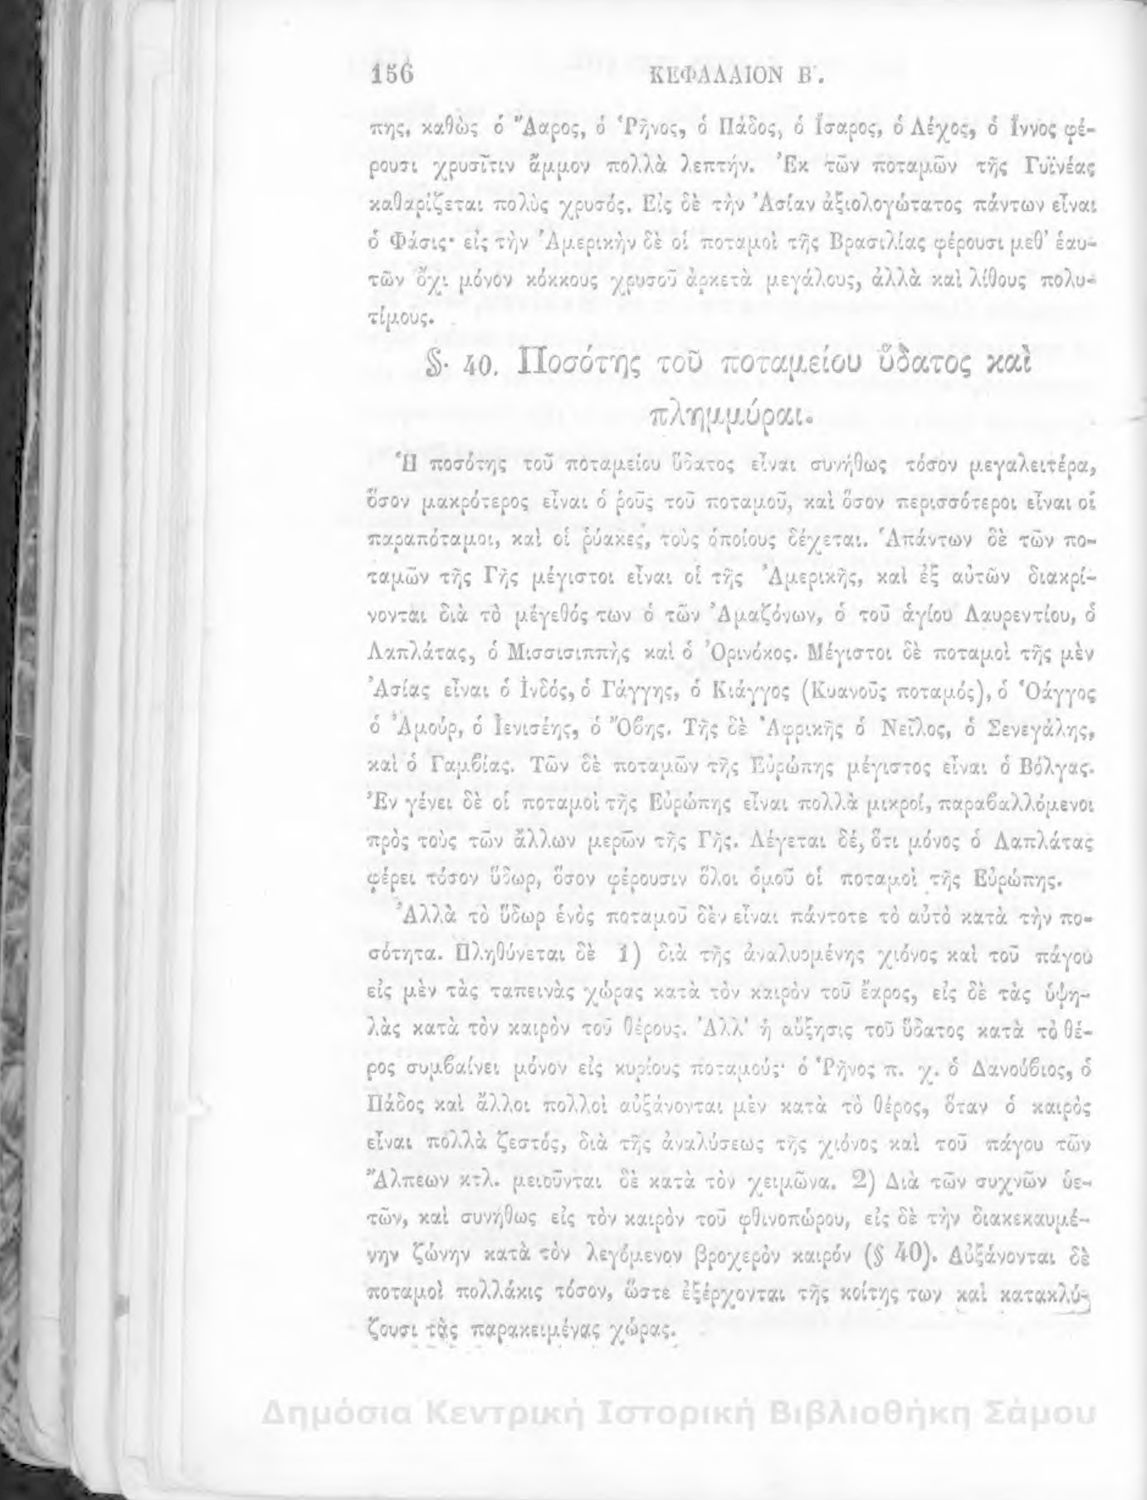 156 ΚΕΦΑΛΑΙΟΝ Β΄.
πης, καθὼς ὁ Ἄαρος, ὁ Ῥῆνος, ὁ Πάδος, ὁ Ἴσαρος, ὁ Λέχος, ὁ Ἴννος φέ-
ρουσι χρυσῖτιν ἄμμον πολλὰ λεπτήν. Ἐκ τῶν ποταμῶν τῆς Γυϊνέας
καθαρίζεται πολὺς χρυσός. Εἰς δὲ τὴν Ἀσίαν ἀξιολογώτατος πάντων εἶναι
ὁ Φάσις· εἰς τὴν Ἀμερικὴν δὲ οἱ ποταμοὶ τῆς Βρασιλίας φέρουσι μεθ' ἑαυ-
τῶν ὄχι μόνον κόκκους χρυσοῦ ἀρκετὰ μεγάλους, ἀλλὰ καὶ λίθους πολυ-
τίμους.
§. 40. Ποσότης τοῦ ποταμείου ὕδατος καὶ
πλημμύραι.
Ἡ ποσότης τοῦ ποταμείου ὕδατος εἶναι συνήθως τόσον μεγαλειτέρα,
ὅσον μακρότερος εἶναι ὁ ῥοῦς τοῦ ποταμοῦ, καὶ ὅσον περισσότεροι εἶναι οἱ
παραπόταμοι, καὶ οἱ ῥύακες, τοὺς ὁποίους δέχεται. Ἁπάντων δὲ τῶν πο-
ταμῶν τῆς Γῆς μέγιστοι εἶναι οἱ τῆς Ἀμερικῆς, καὶ ἐξ αὐτῶν διακρί-
νονται διὰ τὸ μέγεθός των ὁ τῶν Ἀμαζόνων, ὁ τοῦ ἁγίου Λαυρεντίου, ὁ
Λαπλάτας, ὁ Μισσισιππὴς καὶ ὁ Ὀρινόκος. Μέγιστοι δὲ ποταμοὶ τῆς μὲν
Ἀσίας εἶναι ὁ Ἰνδός, ὁ Γάγγης, ὁ Κιάγγος (Κυανοῦς ποταμός), ὁ Ὁάγγος
ὁ Ἀμούρ, ὁ Ἰενισέης, ὁ Ὄβης. Τῆς δὲ Ἀφρικῆς ὁ Νεῖλος, ὁ Σενεγάλης,
καὶ ὁ Γαμβίας. Τῶν δὲ ποταμῶν τῆς Εὐρώπης μέγιστος εἶναι ὁ Βόλγας.
Ἐν γένει δὲ οἱ ποταμοὶ τῆς Εὐρώπης εἶναι πολλὰ μικροί, παραβαλλόμενοι
πρὸς τοὺς τῶν ἄλλων μερῶν τῆς Γῆς. Λέγεται δέ, ὅτι μόνος ὁ Λαπλάτας
φέρει τόσον ὕδωρ, ὅσον φέρουσιν ὅλοι ὁμοῦ οἱ ποταμοὶ τῆς Εὐρώπης.
Ἀλλὰ τὸ ὕδωρ ἑνὸς ποταμοῦ δὲν εἶναι πάντοτε τὸ αὐτὸ κατὰ τὴν πο-
σότητα. Πληθύνεται δὲ 1) διὰ τῆς ἀναλυομένης χιόνος καὶ τοῦ πάγου
εἰς μὲν τὰς ταπεινὰς χώρας κατὰ τὸν καιρὸν τοῦ ἔαρος, εἰς δὲ τὰς ὑψη-
λὰς κατὰ τὸν καιρὸν τοῦ θέρους. Ἀλλ' ἡ αὔξησις τοῦ ὕδατος κατὰ τὸ θέ-
ρος συμβαίνει μόνον εἰς κυρίους ποταμούς· ὁ Ῥῆνος π. χ. ὁ Δανούβιος, ὁ
Πάδος καὶ ἄλλοι πολλοὶ αὐξάνονται μὲν κατὰ τὸ θέρος, ὅταν ὁ καιρὸς
εἶναι πολλὰ ζεστός, διὰ τῆς ἀναλύσεως τῆς χιόνος καὶ τοῦ πάγου τῶν
Ἄλπεων κτλ. μειοῦνται δὲ κατὰ τὸν χειμῶνα. 2) Διὰ τῶν συχνῶν ὑε-
τῶν, καὶ συνήθως εἰς τὸν καιρὸν τοῦ φθινοπώρου, εἰς δὲ τὴν διακεκαυμέ-
νην ζώνην κατὰ τὸν λεγόμενον βροχερὸν καιρόν (§ 40). Αὐξάνονται δὲ
ποταμοὶ πολλάκις τόσον, ὥστε ἐξέρχονται τῆς κοίτης των καὶ κατακλύ-
ζουσι τὰς παρακειμένας χώρας.
Δημόσια Κεντρική Ιστορική Βιβλιοθήκη Σάμου